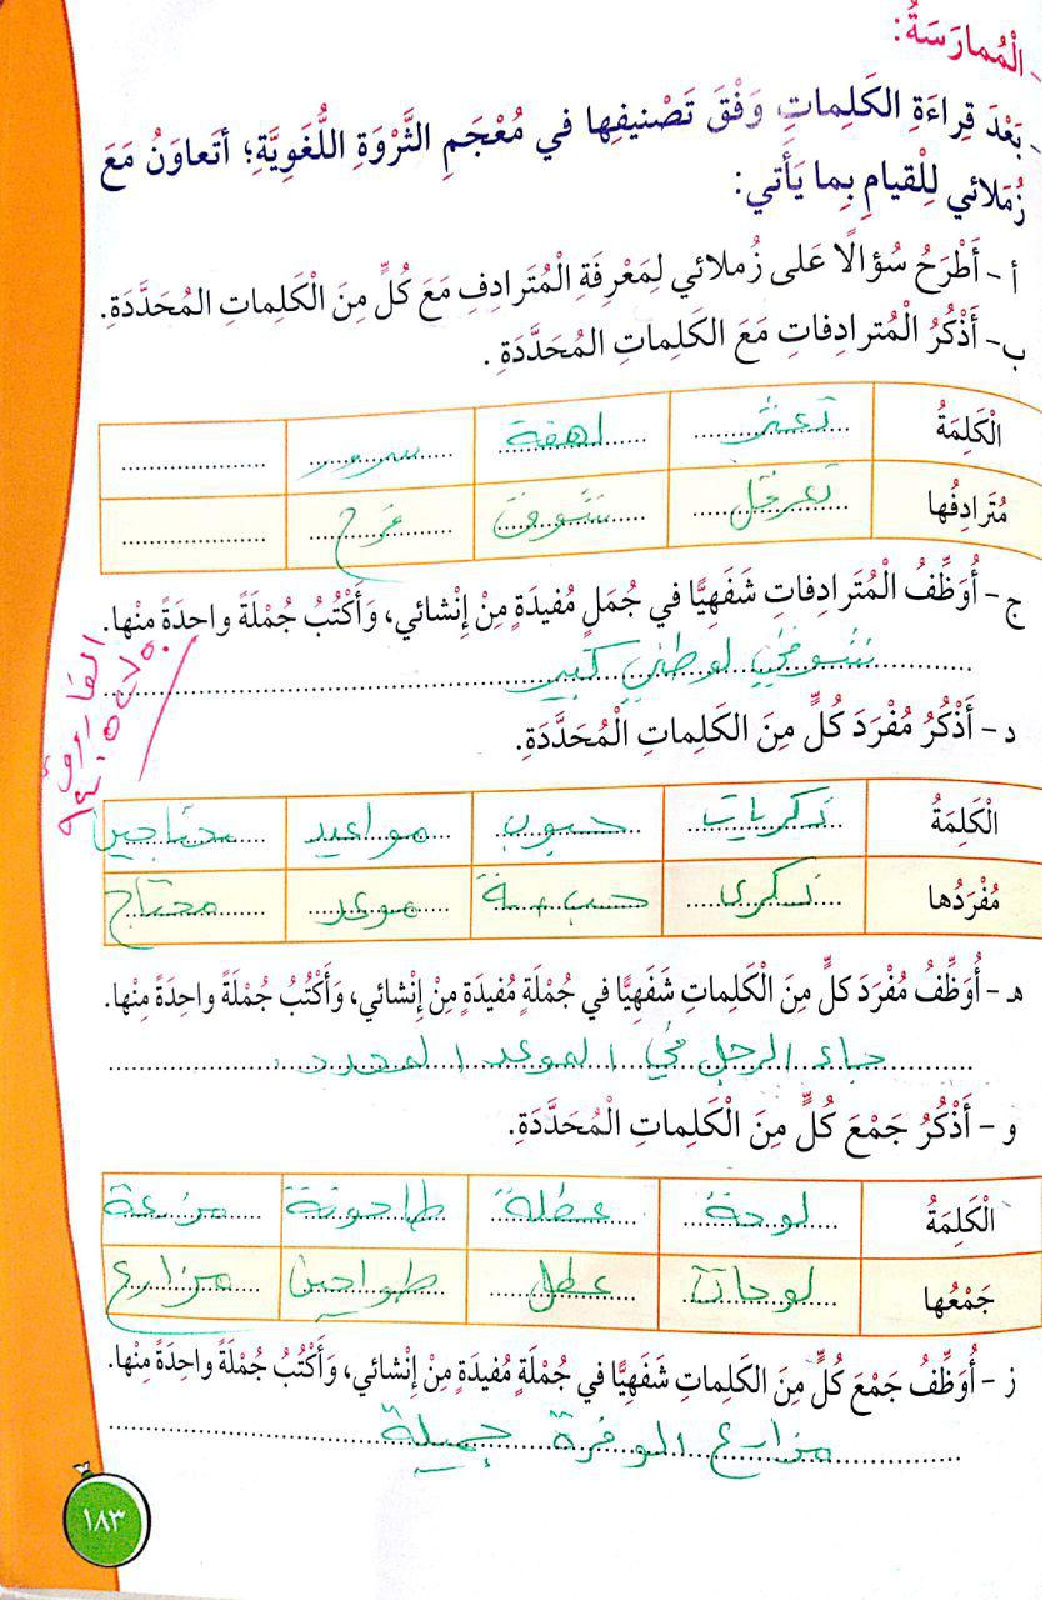 - الْمُمارَسَةُ:
- بَعْدَ قِراءَةِ الكَلِماتِ وَفْقَ تَصْنيفِها في مُعْجَمِ الثَّرْوَةِ اللُّغَوِيَّةِ؛ أَتَعاوَنُ مَعَ
زُمَلائي لِلْقيامِ بِما يَأْتي:
أ - أَطْرَحُ سُؤالًا عَلى زُملائي لِمَعْرِفَةِ الْمُتَرادِفِ مَعَ كُلٍّ مِنَ الْكَلِماتِ المُحَدَّدَةِ.
ب- أَذْكُرُ الْمُترادِفاتِ مَعَ الكَلِماتِ المُحَدَّدَةِ .
الْكَلِمَةُ تعثر لهفة سرور
مُتَرادِفُها تعرقل شوق فرح
ج - أُوَظِّفُ الْمُتَرادِفاتِ شَفَهِيًّا في جُمَلٍ مُفيدَةٍ مِنْ إِنْشائي، وَأَكْتُبُ جُمْلَةً واحِدَةً مِنْها.
شوقي لوطني كبير
د - أَذْكُرُ مُفْرَدَ كُلٍّ مِنَ الكَلِماتِ الْمُحَدَّدَةِ.
الْكَلِمَةُ ذكريات حبوب مواعيد محتاجين
مُفْرَدُها ذكرى حبة موعد محتاج
هـ - أُوَظِّفُ مُفْرَدَ كلٍّ مِنَ الْكَلِماتِ شَفَهِيًّا في جُمْلَةٍ مُفيدَةٍ مِنْ إِنْشائي، وَأَكْتُبُ جُمْلَةً واحِدَةً مِنْها.
جاء الرجل في الموعد المحدد
و - أَذْكُرُ جَمْعَ كُلٍّ مِنَ الْكَلِماتِ الْمُحَدَّدَةِ.
الْكَلِمَةُ لوحة عطلة طاحونة مزرعة
جَمْعُها لوحات عطل طواحين مزارع
ز - أُوَظِّفُ جَمْعَ كُلٍّ مِنَ الكَلِماتِ شَفَهِيًّا في جُمْلَةٍ مُفيدَةٍ مِنْ إِنْشائي، وَأَكْتُبُ جُمْلَةً واحِدَةً مِنْها.
مزارع الوفرة جميلة
١٨٣